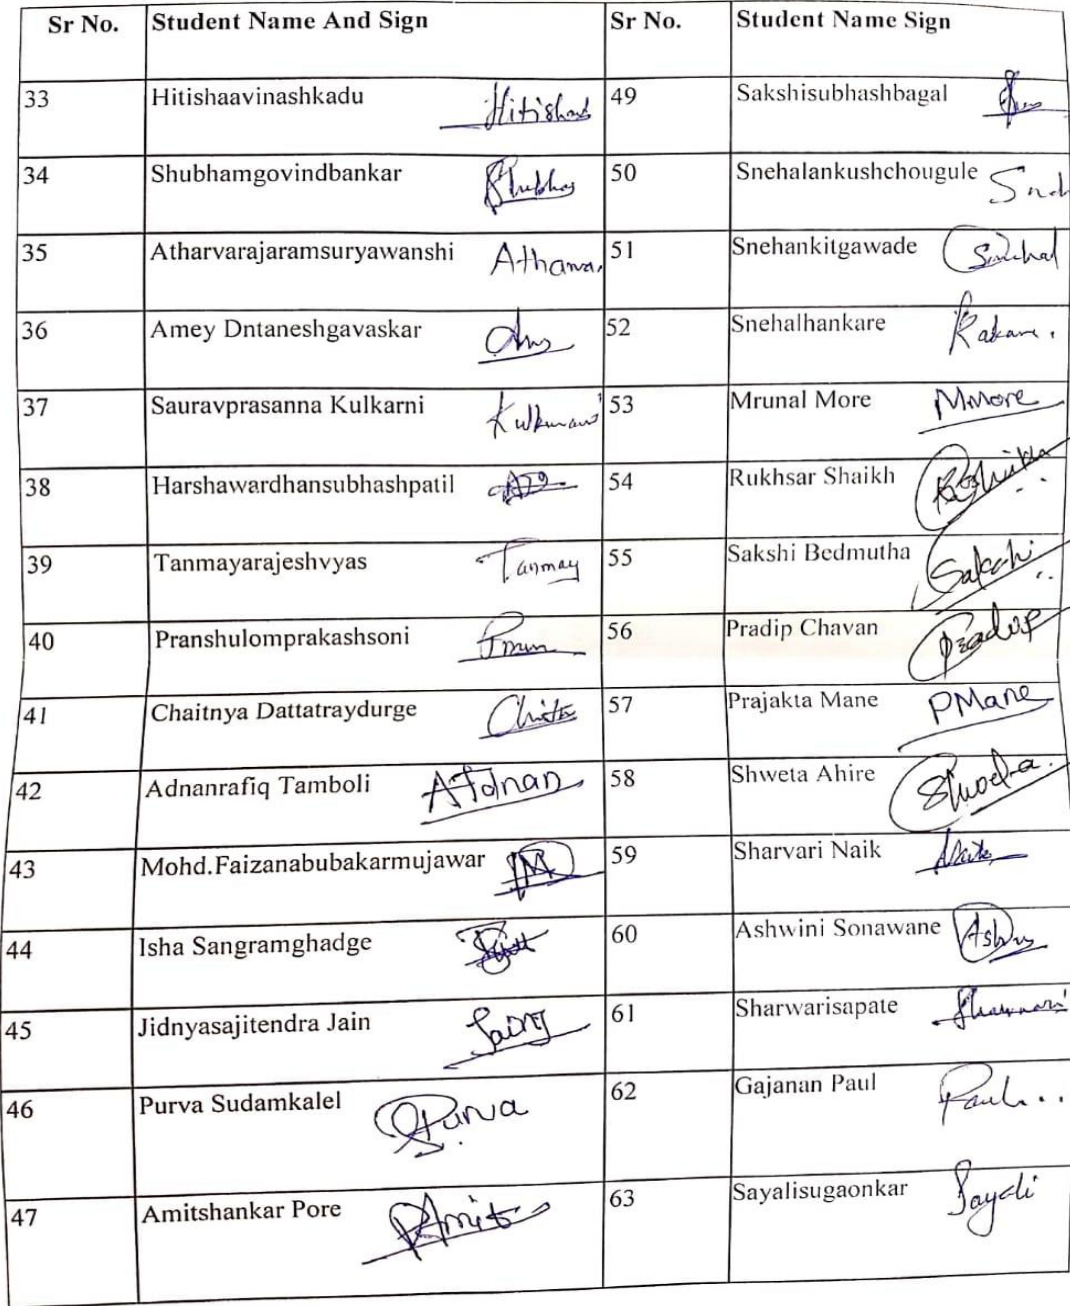 Sr No. Student Name And Sign Sr No. Student Name Sign
33 Hitishaavinashkadu 49 Sakshisubhashbagal
34 Shubhamgovindbankar 50 Snehalankushchougule
35 Atharvarajaramsuryawanshi 51 Snehankitgawade
36 Amey Dntaneshgavaskar 52 Snehalhankare
37 Sauravprasanna Kulkarni Kulkarni 53 Mrunal More MMore
38 Harshawardhansubhashpatil 54 Rukhsar Shaikh
39 Tanmayarajeshvyas Tanmay 55 Sakshi Bedmutha Sakshi
40 Pranshulomprakashsoni 56 Pradip Chavan Pradip
41 Chaitnya Dattatraydurge 57 Prajakta Mane PMane
42 Adnanrafiq Tamboli 58 Shweta Ahire
43 Mohd.Faizanabubakarmujawar 59 Sharvari Naik
44 Isha Sangramghadge 60 Ashwini Sonawane
45 Jidnyasajitendra Jain 61 Sharwarisapate
46 Purva Sudamkalel Purva 62 Gajanan Paul
47 Amitshankar Pore Amit 63 Sayalisugaonkar